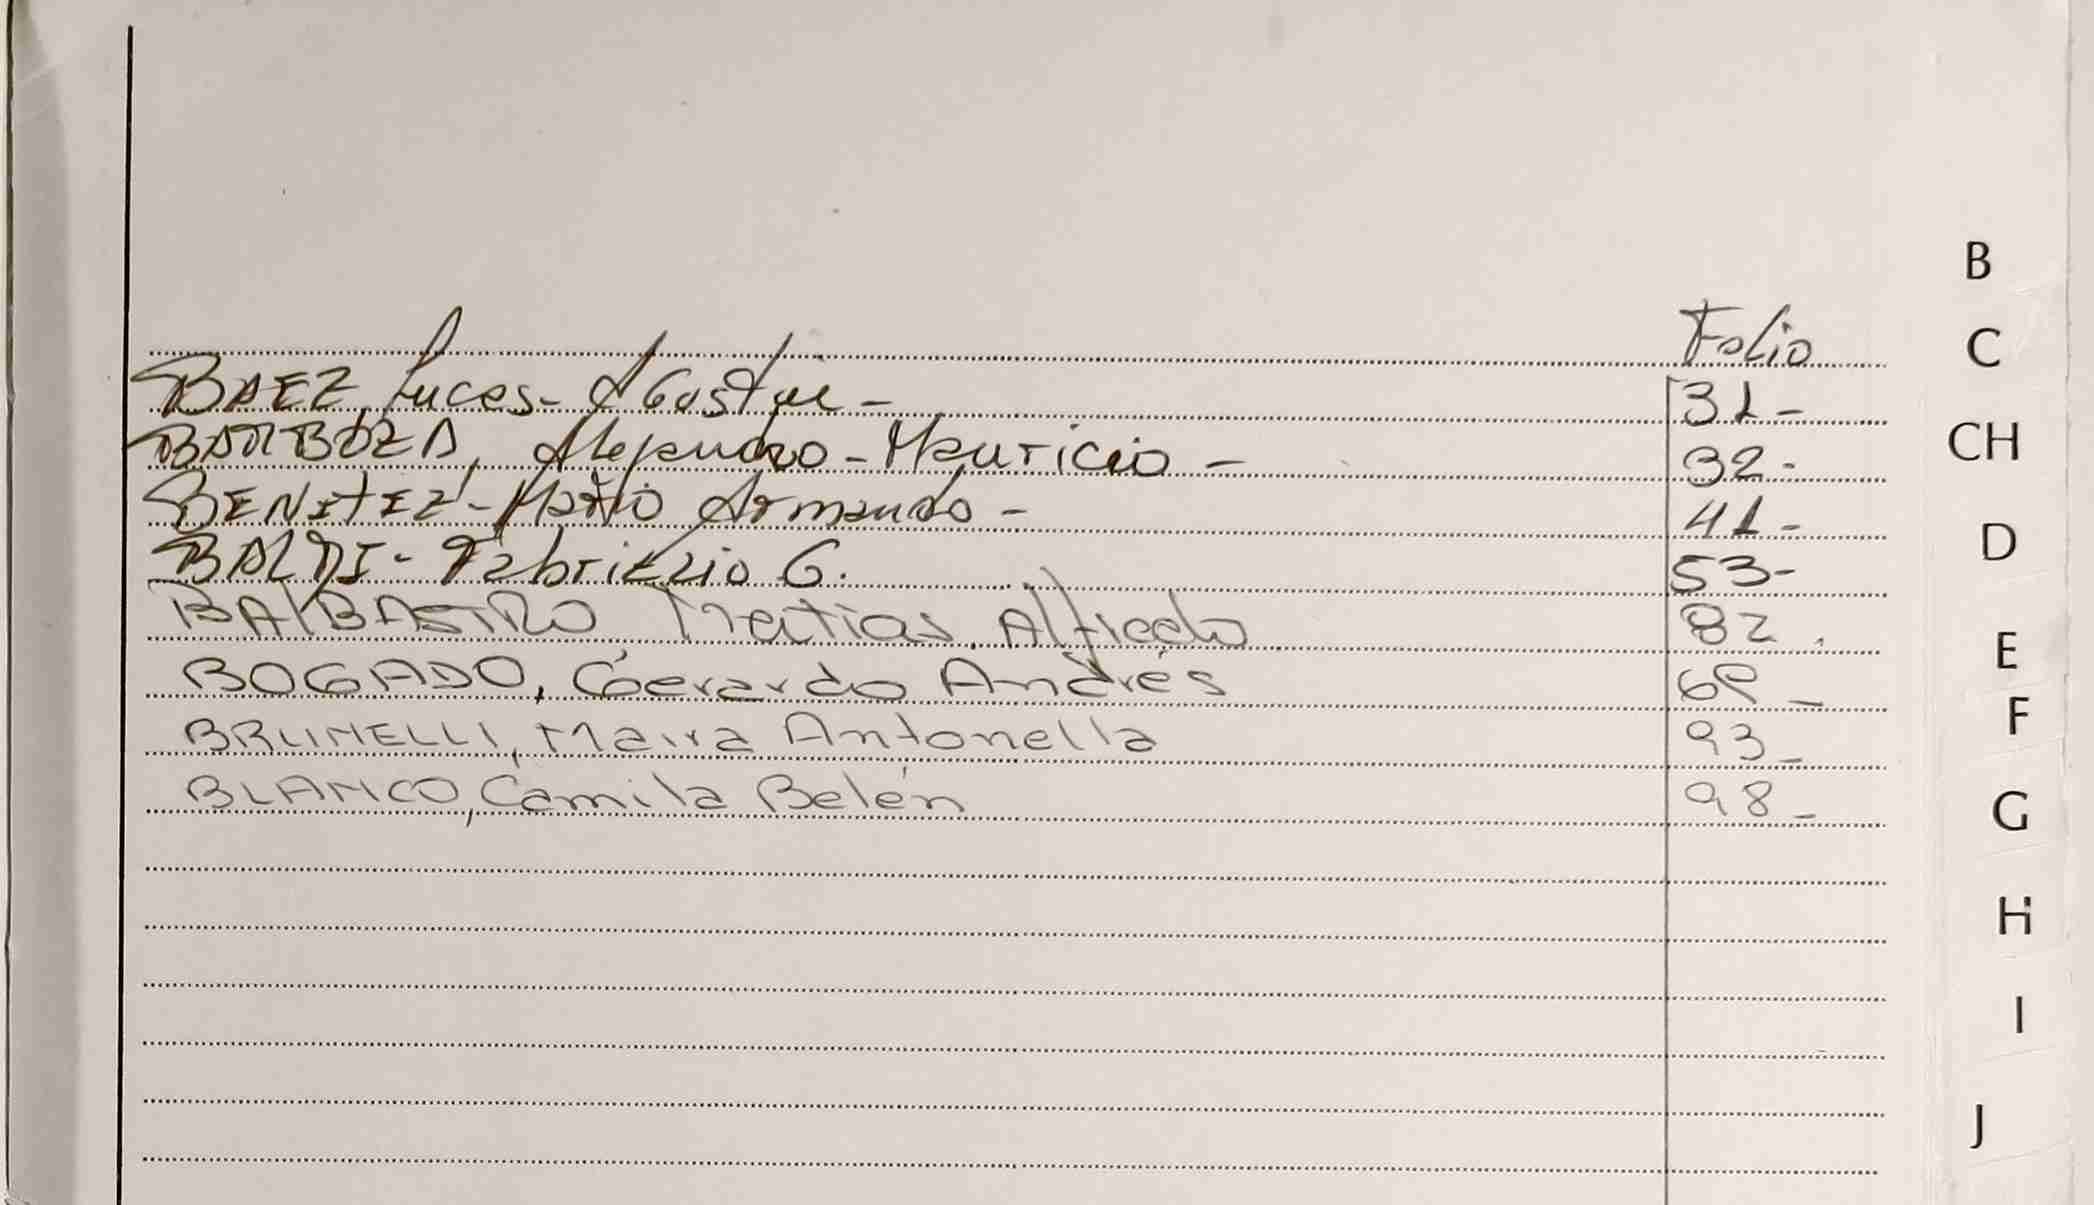 Folio
BAEZ, Lucas - Agustín - 31 -
BARBOZA, Alejandro - Mauricio - 32 -
BENITEZ - Mario Armando - 41 -
BALDI - Fabrizzio G. 53 -
BALBASTRO Matías Alfredo 82.
BOGADO, Gerardo Andrés 69 -
BRUNELLI, Maira Antonella 93 -
BLANCO, Camila Belén 98 -
B
C
CH
D
E
F
G
H
I
J